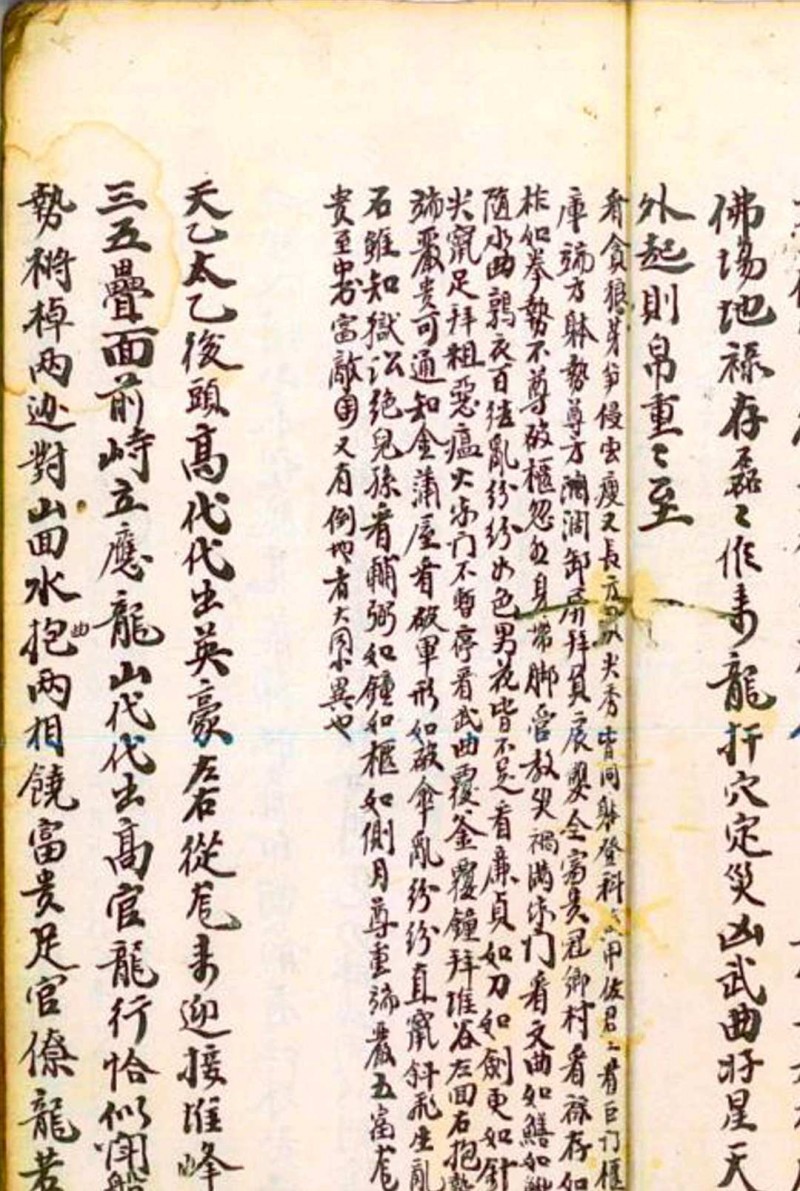 佛場地祿存磊〻作来龍扞穴定災凶武曲好星天
外起則帛重〻至
看貪狼芽笋侵雲瘦又長方尖秀皆同射登科佐君看巨门櫃
庫端方躰勢尊方濶卸屏拜全富貴冠鄉村看祿存如
柞如拳勢不尊破櫃忽身帶脚管教災禍满门看文曲如鱔如
随水曲鶉衣百结亂紛紛如色男花皆不足看廉貞如刀如劍更如針
尖竄足拜粗惡瘟火门不暫停看武曲覆釜覆鐘拜堆谷左面右抱
端嚴贵可通知金蒲屋看破軍形如破傘亂紛紛直竄斜飛座亂
石雖知獄讼绝兒孫看輔弼如鐘如櫃如側月尊重端嚴五富
贵至中書富敵国又有倒地者大同小異也
天乙太乙後頭高代代出英豪左右從龙来迎接堆峰
三五疊面前峙立應龍山代代出高官龍行恰似開船
勢槳棹两边對山回水抱曲两相饒富贵足官僚龍若